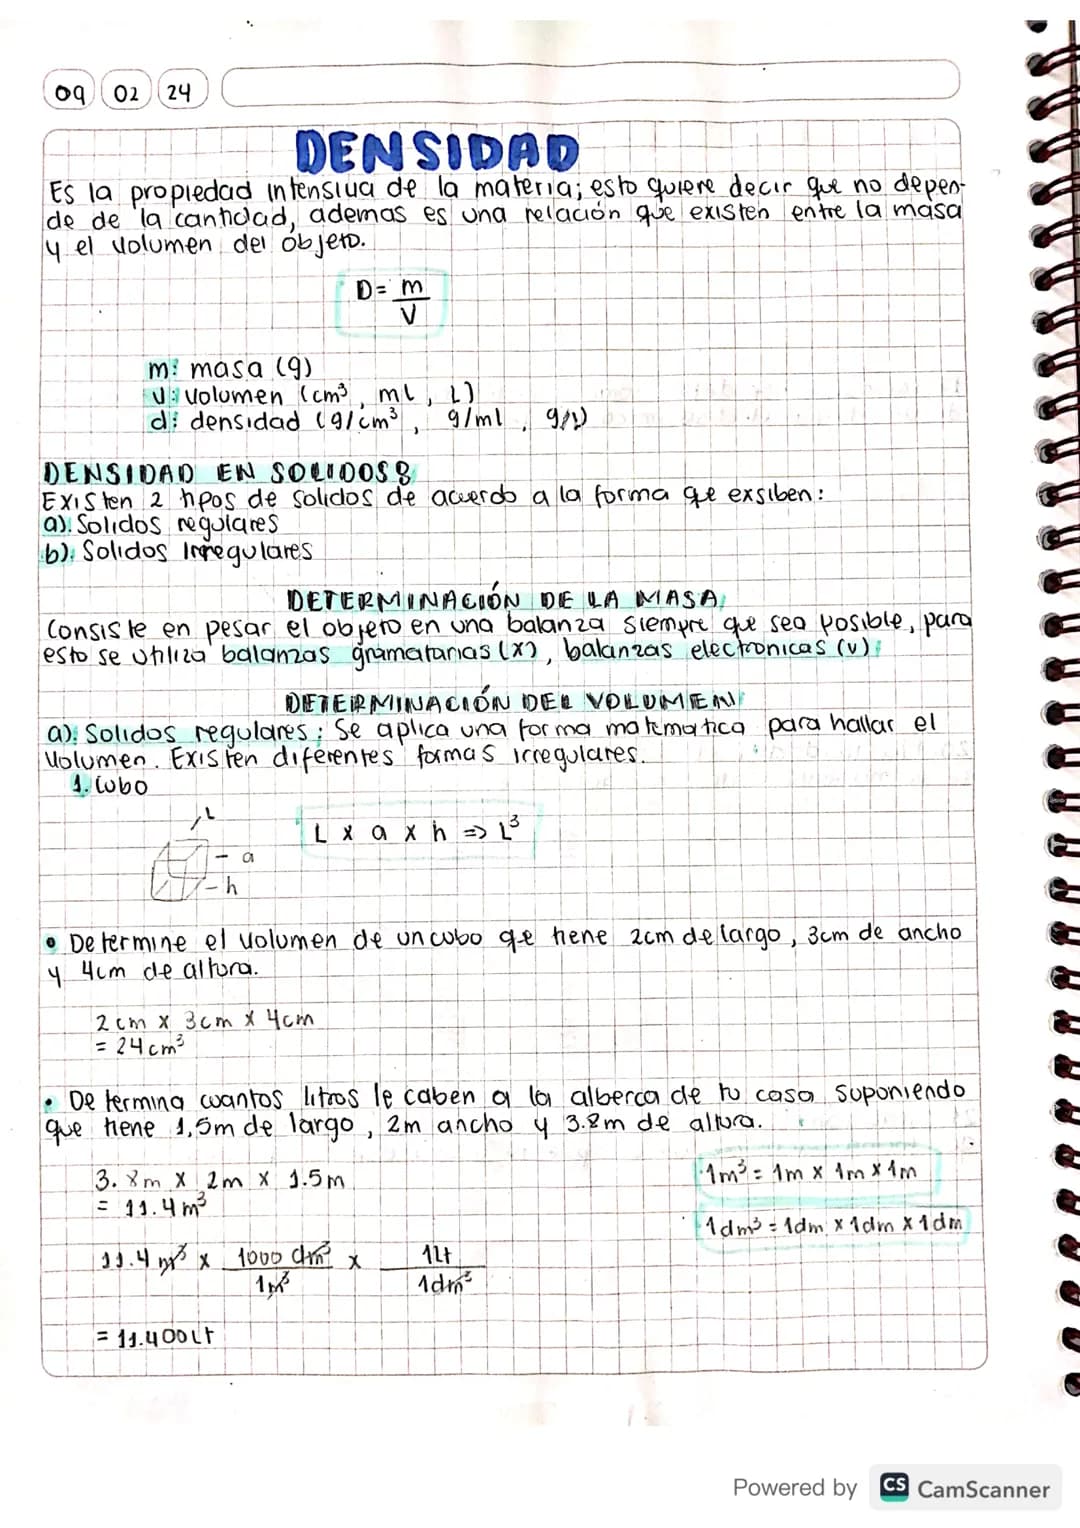 09 02 24
DENSIDAD
Es la propiedad intensiva de la materia; esto quiere decir que no depen-
de de la cantidad, ademas es una relación que existen entre la masa
y el volumen del objeto.
D = m
V
m: masa (g)
v: volumen (cm³, ml, L)
d: densidad (g/cm³, g/ml, g/l)
DENSIDAD EN SOLIDOS:
Existen 2 tipos de solidos de acuerdo a la forma que exsiben:
a). Solidos regulares
b). Solidos Irregulares
DETERMINACIÓN DE LA MASA
Consiste en pesar el objeto en una balanza siempre que sea posible, para
esto se utiliza balanzas gramatarias (x), balanzas electronicas (v)
DETERMINACIÓN DEL VOLUMEN
a). Solidos regulares: Se aplica una forma matematica para hallar el
Volumen. Existen diferentes formas irregulares.
1. Cubo
L
L x a x h => L³
- a
- h
• Determine el volumen de un cubo que tiene 2cm de largo, 3cm de ancho
y 4cm de altura.
2cm x 3cm x 4cm
= 24cm³
• Determina cuantos litros le caben a la alberca de tu casa suponiendo
que tiene 1,5m de largo, 2m ancho y 3.8m de altura.
3.8m x 2m x 1.5m
= 11.4m³
1m³ = 1m x 1m x 1m
1dm³ = 1dm x 1dm x 1dm
11.4 m³ x 1000 dm³ x 1Lt
1m³ 1dm³
= 11.400Lt
Powered by CS CamScanner